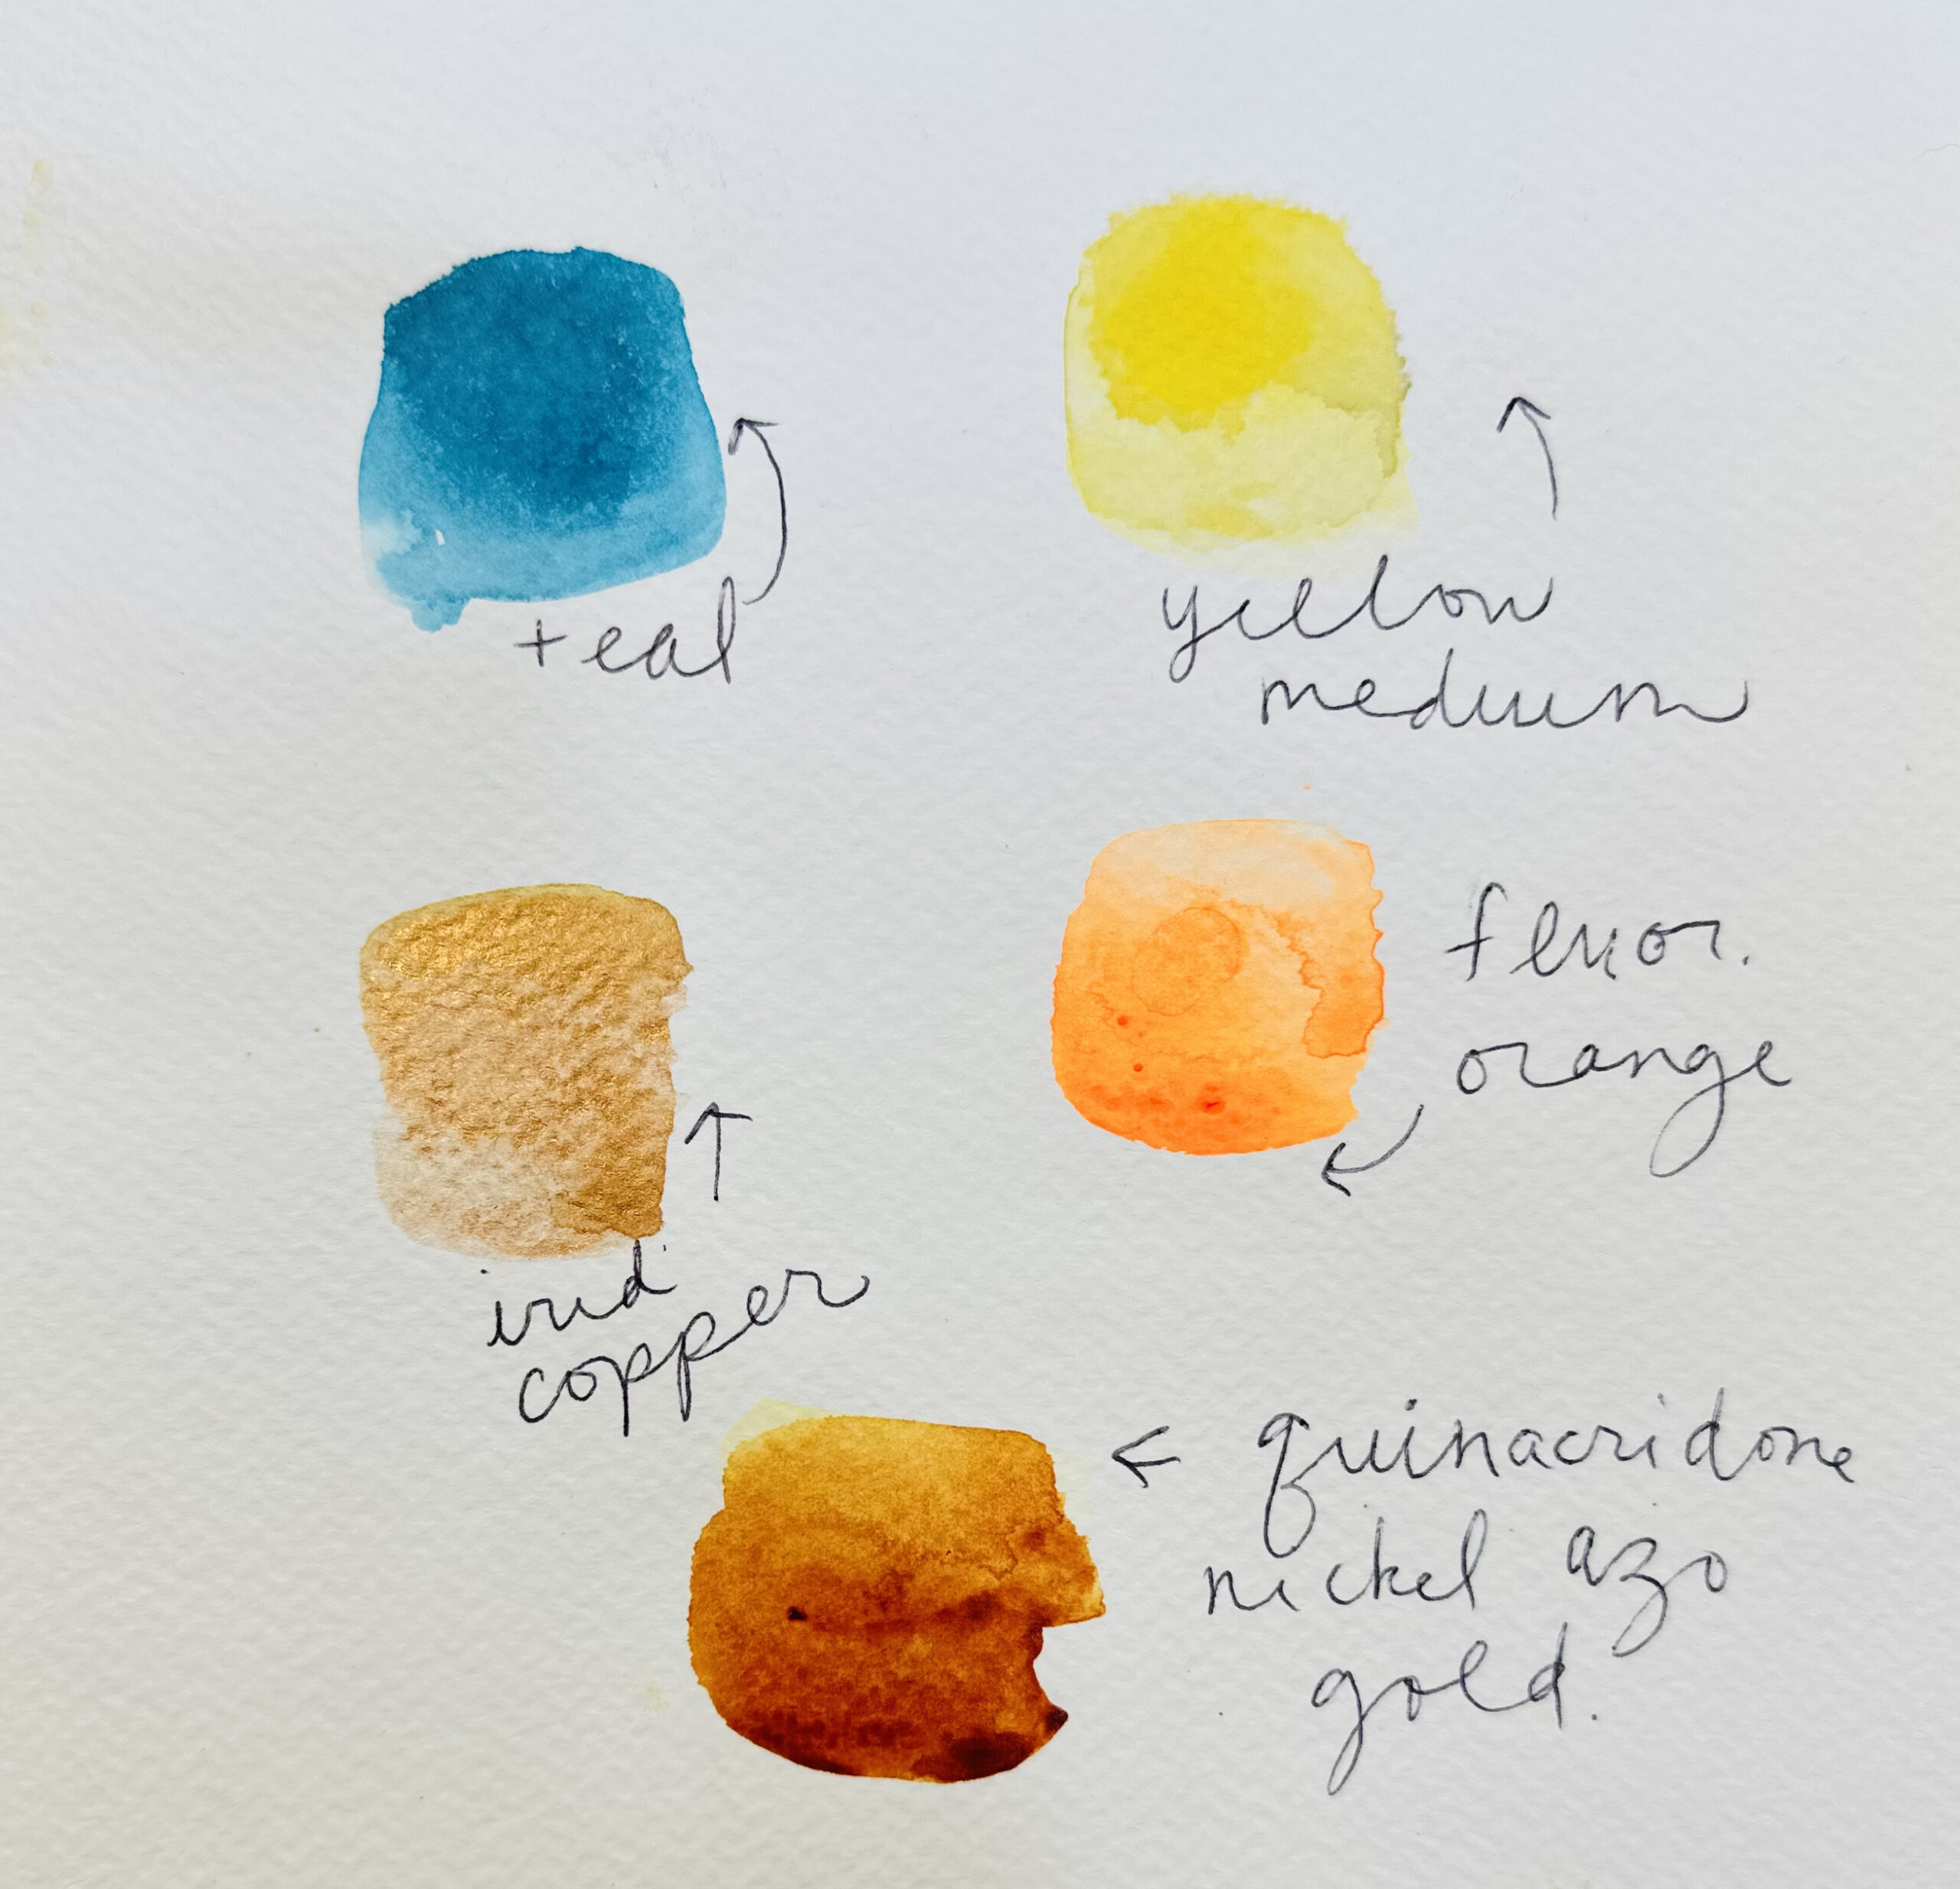 teal
yellow
medium
fluor.
orange
irid
copper
quinacridone
nickel azo
gold.